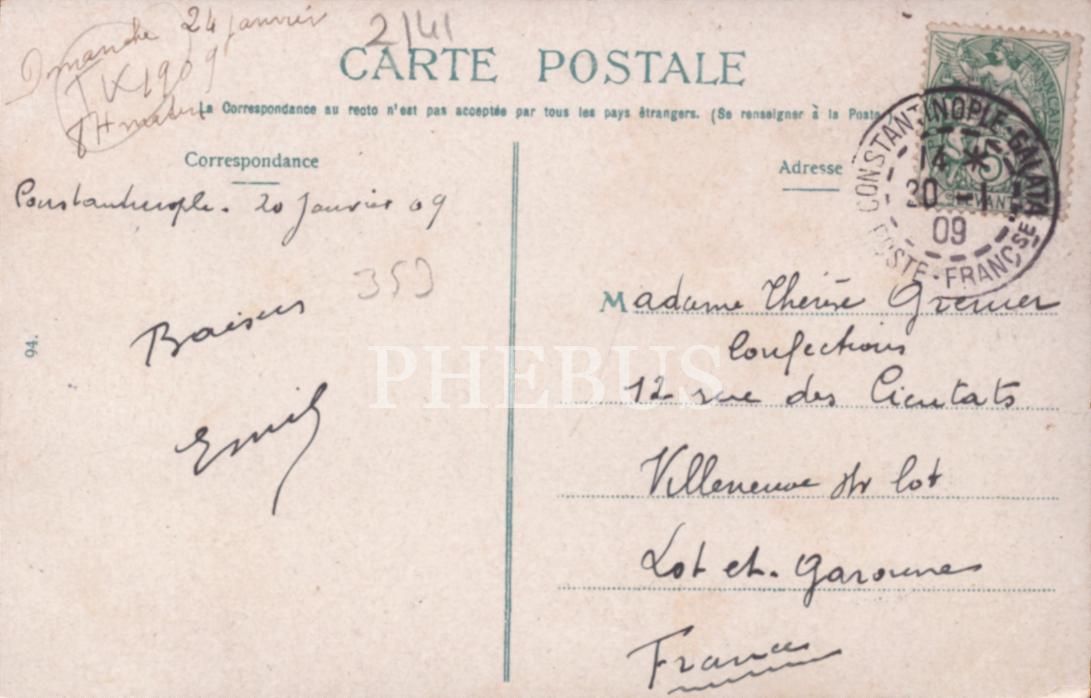 Dimanche 24 janvier
1909
8H matin
2/41
CARTE POSTALE
La Correspondance au recto n'est pas acceptée par tous les pays étrangers. (Se renseigner à la Poste)
Correspondance
Constantinople. 20 Janvier 09
353
Baisers
Emil
94.
PHEBUS
Adresse
CONSTANTINOPLE-GALATA
14 * 5
20 -1
09
POSTE-FRANÇSE
LEVANT
Madame Thérèse Grenier
Confections
12 rue des Cieutats
Villeneuve str lot
Lot et. Garonnes
France